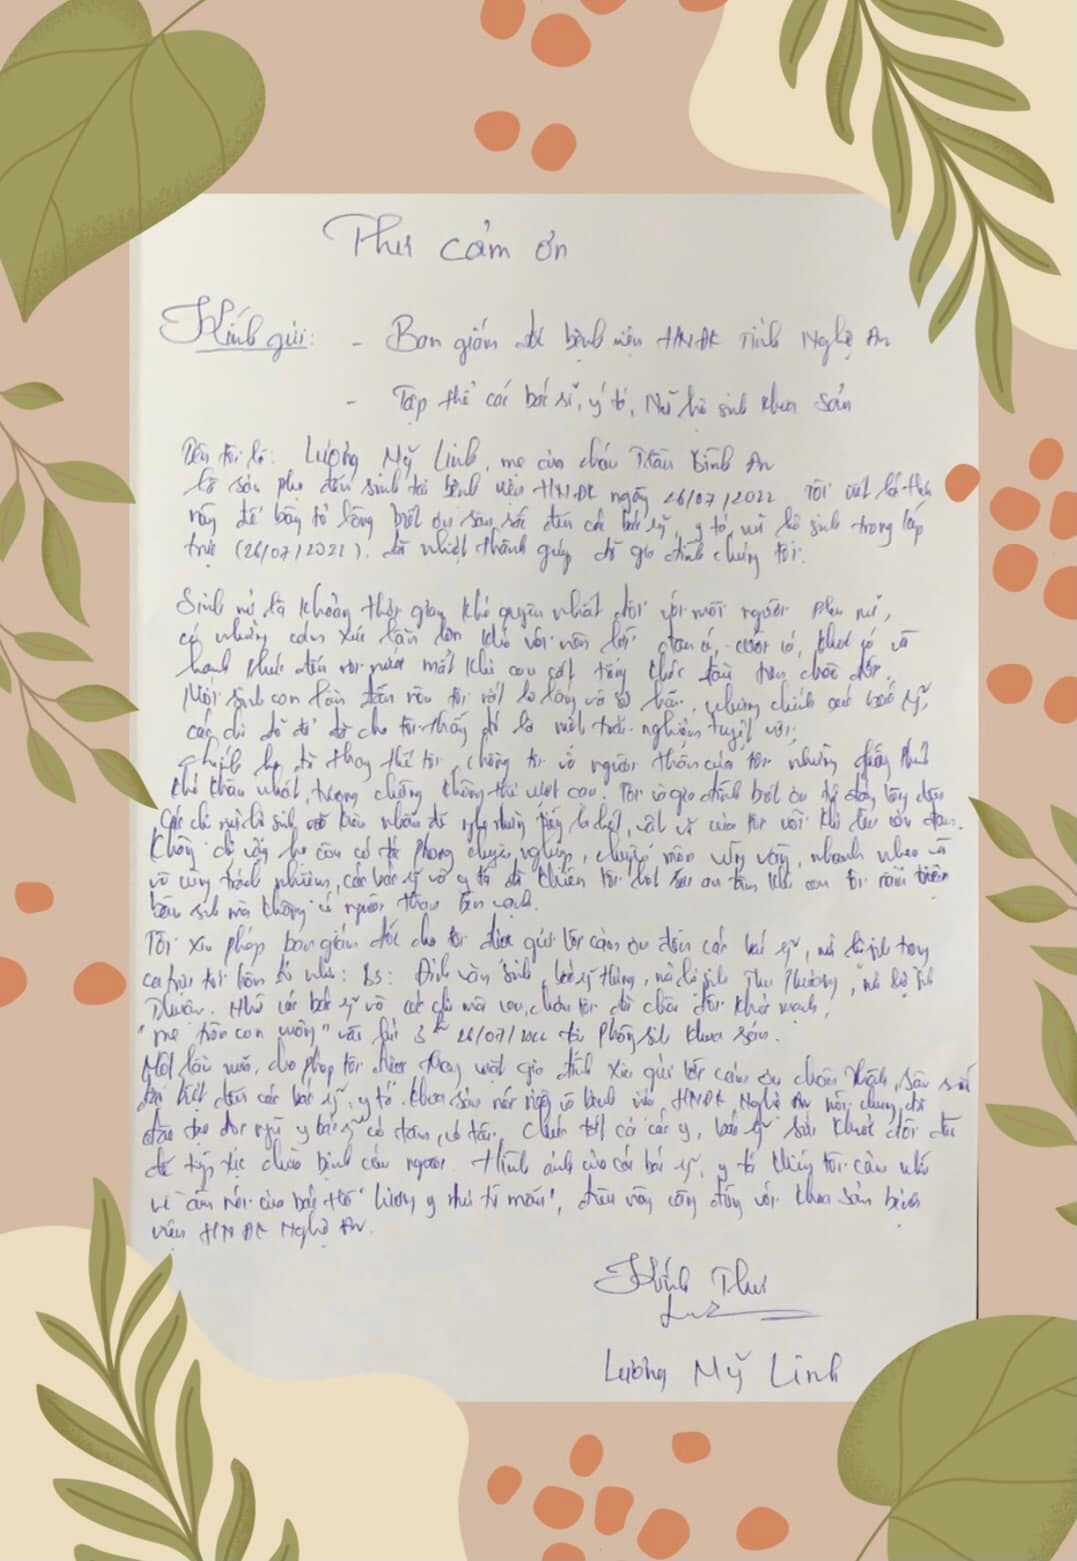 Thư cảm ơn
Kính gửi: - Ban giám đốc bệnh viện HNĐK Tỉnh Nghệ An
- Tập thể các bác sĩ, y tá, Nữ hộ sinh khoa Sản
Tên tôi là: Lương Mỹ Linh, mẹ của cháu Trần Bình An
là sản phụ đến sinh tại bệnh viện HNĐK ngày 26/07/2022 Tôi viết lá thư
này để bày tỏ lòng biết ơn sâu sắc đến các bác sỹ, y tá, nữ hộ sinh trong kíp
trực (26/07/2022). đã nhiệt thành giúp đỡ gia đình chúng tôi.
Sinh nở là khoảng thời gian khó quên nhất đối với mỗi người phụ nữ,
có những cảm xúc lẫn lộn khó với nên lời đau có, cười có, khóc có và
hạnh phúc đến rơi nước mắt khi con cất tiếng khóc đầu tiên chào đời.
Mới sinh con lần đầu nên tôi rất lo lắng và sợ hãi, nhưng chính các bác sỹ,
các chị đã để cho tôi thấy đó là một trải nghiệm tuyệt vời,
chính họ đã thay thế tôi, chồng tôi và người thân của tôi những giây phút
khó khăn nhất, tưởng chừng không thể vượt qua. Tôi và gia đình biết ơn từ đáy lòng đến
Các chị nữ hộ sinh kiên nhẫn để nghe những tiếng la hét, vật vã của tôi với khi lên cơn đau.
Không chỉ vậy họ còn có tác phong chuyên nghiệp, chuyên môn vững vàng, nhanh nhẹn và
vô cùng trách nhiệm, các bác sỹ và y tá đã khiến tôi hết sức an tâm khi con tôi nằm trên
bàn sinh mà không có người thân bên cạnh.
Tôi xin phép ban giám đốc cho tôi được gửi lời cảm ơn đến các bác sỹ, nữ hộ sinh trong
ca trực tôi hôm đó như: BS: Đinh Văn Sinh, bác sỹ Hùng, nữ hộ sinh Thu Thương, nữ hộ sinh
. Nhờ các bác sỹ và các chị mà con, cháu tôi đã chào đời khỏe mạnh,
"mẹ tròn con vuông" vào lúc 3h 26/07/2022 tại Phòng sinh khoa sản.
Một lần nữa, cho phép tôi được thay mặt gia đình xin gửi lời cảm ơn chân thành, sâu sắc
đặc biệt đến các bác sỹ, y tá khoa sản nói riêng và bệnh viện HNĐK Nghệ An nói chung đã
đào tạo đội ngũ y bác sỹ có tâm, có tầm. Chúc tất cả các y, bác sỹ sức khỏe dồi dào
để tiếp tục chữa bệnh cứu người. Hình ảnh của các bác sỹ, y tá khiến tôi càng nhớ
về câu nói của bác Hồ "Lương y như từ mẫu", điều này càng đúng với khoa sản bệnh
viện HNĐK Nghệ An.
Kính Thư
Lương Mỹ Linh